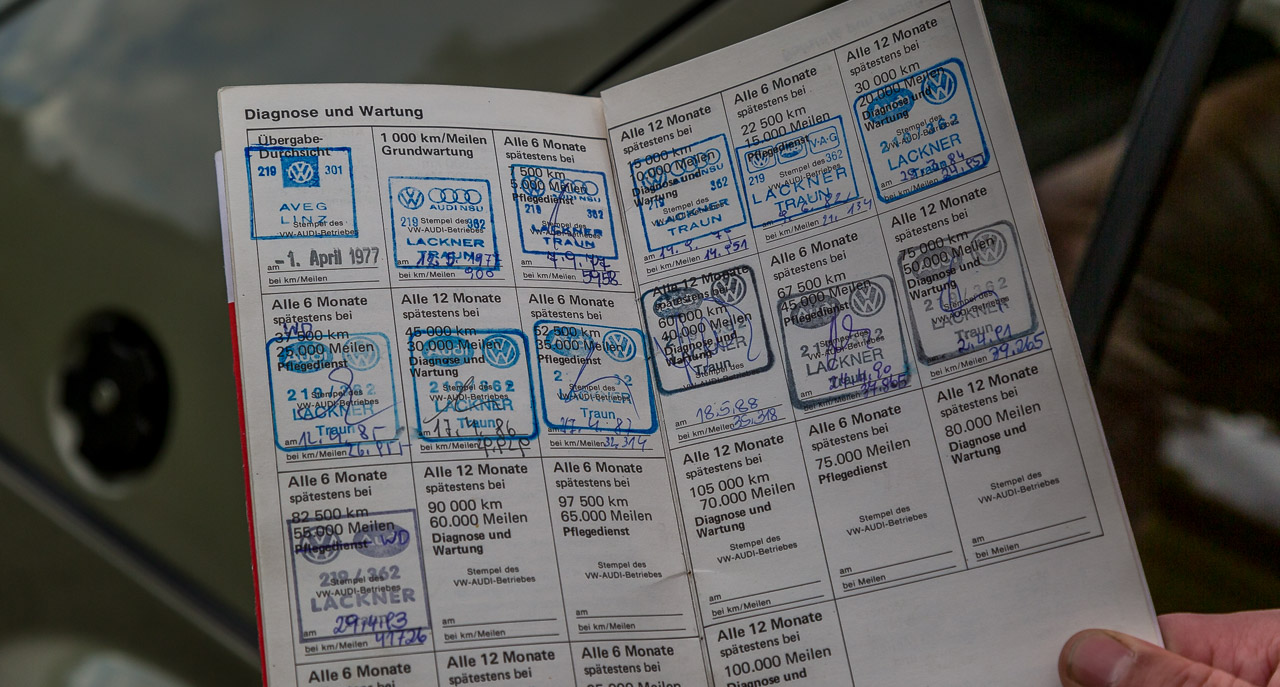 Diagnose und Wartung
Übergabe-
Durchsicht
219 301
AVEG
LINZ
Stempel des
VW-AUDI-Betriebes
am -1. April 1977
bei km/Meilen
1 000 km/Meilen
Grundwartung
AUDI NSU
219 362
Stempel des
VW-AUDI-Betriebes
LACKNER
TRAUN
am
bei km/Meilen 900
Alle 6 Monate
spätestens bei
500 km
5.000 Meilen
Pflegedienst
219 362
LACKNER
TRAUN
am
bei km/Meilen 5958
Alle 12 Monate
spätestens bei
15 000 km
10.000 Meilen
Diagnose und
Wartung
362
Stempel des
LACKNER
TRAUN
am
bei km/Meilen 14.951
Alle 6 Monate
spätestens bei
22 500 km
15.000 Meilen
Pflegedienst
V·A·G
219 362
Stempel des
VW-AUDI-Betriebes
LACKNER
TRAUN
am
bei km/Meilen 21.134
Alle 12 Monate
spätestens bei
30 000 km
20.000 Meilen
Diagnose und
Wartung
Stempel des
VW-AUDI-Betriebes
LACKNER
Traun
am
bei km/Meilen
Alle 6 Monate
spätestens bei
37 500 km
25.000 Meilen
Pflegedienst
Stempel des
VW-AUDI-Betriebes
LACKNER
Traun
am
bei km/Meilen
Alle 12 Monate
spätestens bei
45 000 km
30.000 Meilen
Diagnose und
Wartung
Stempel des
VW-AUDI-Betriebes
LACKNER
Traun
am 17.4.86
bei km/Meilen
Alle 6 Monate
spätestens bei
52 500 km
35.000 Meilen
Pflegedienst
Stempel des
VW-AUDI-Betriebes
Traun
am
bei km/Meilen 32.314
Alle 12 Monate
spätestens bei
60 000 km
40.000 Meilen
Diagnose und
Wartung
Traun
am 18.5.88
bei km/Meilen 35.318
Alle 6 Monate
spätestens bei
67 500 km
45.000 Meilen
Pflegedienst
Stempel des
VW-AUDI-Betriebes
LACKNER
Traun
am
bei km/Meilen
Alle 12 Monate
spätestens bei
75 000 km
50.000 Meilen
Diagnose und
Wartung
Stempel des
VW-AUDI-Betriebes
LACKNER
Traun
am 2.4.91
bei km/Meilen 39.265
Alle 6 Monate
spätestens bei
82 500 km
55.000 Meilen
Pflegedienst
219/362
Stempel des
VW-AUDI-Betriebes
LACKNER
am 29.4.93
bei km/Meilen
Alle 12 Monate
spätestens bei
90 000 km
60.000 Meilen
Diagnose und
Wartung
Stempel des
VW-AUDI-Betriebes
am
bei km/Meilen
Alle 6 Monate
spätestens bei
97 500 km
65.000 Meilen
Pflegedienst
Stempel des
VW-AUDI-Betriebes
am
bei km/Meilen
Alle 12 Monate
spätestens bei
105 000 km
70.000 Meilen
Diagnose und
Wartung
Stempel des
VW-AUDI-Betriebes
am
bei km/Meilen
Alle 6 Monate
spätestens bei
75.000 Meilen
Pflegedienst
Stempel des
VW-AUDI-Betriebes
am
bei Meilen
Alle 12 Monate
spätestens bei
80.000 Meilen
Diagnose und
Wartung
Stempel des
VW-AUDI-Betriebes
am
bei Meilen
Alle 6 Monate
spätestens bei
Alle 12 Monate
spätestens bei
Alle 6 Monate
spätestens bei
Alle 12 Monate
spätestens bei
100.000 Meilen
Diagnose und